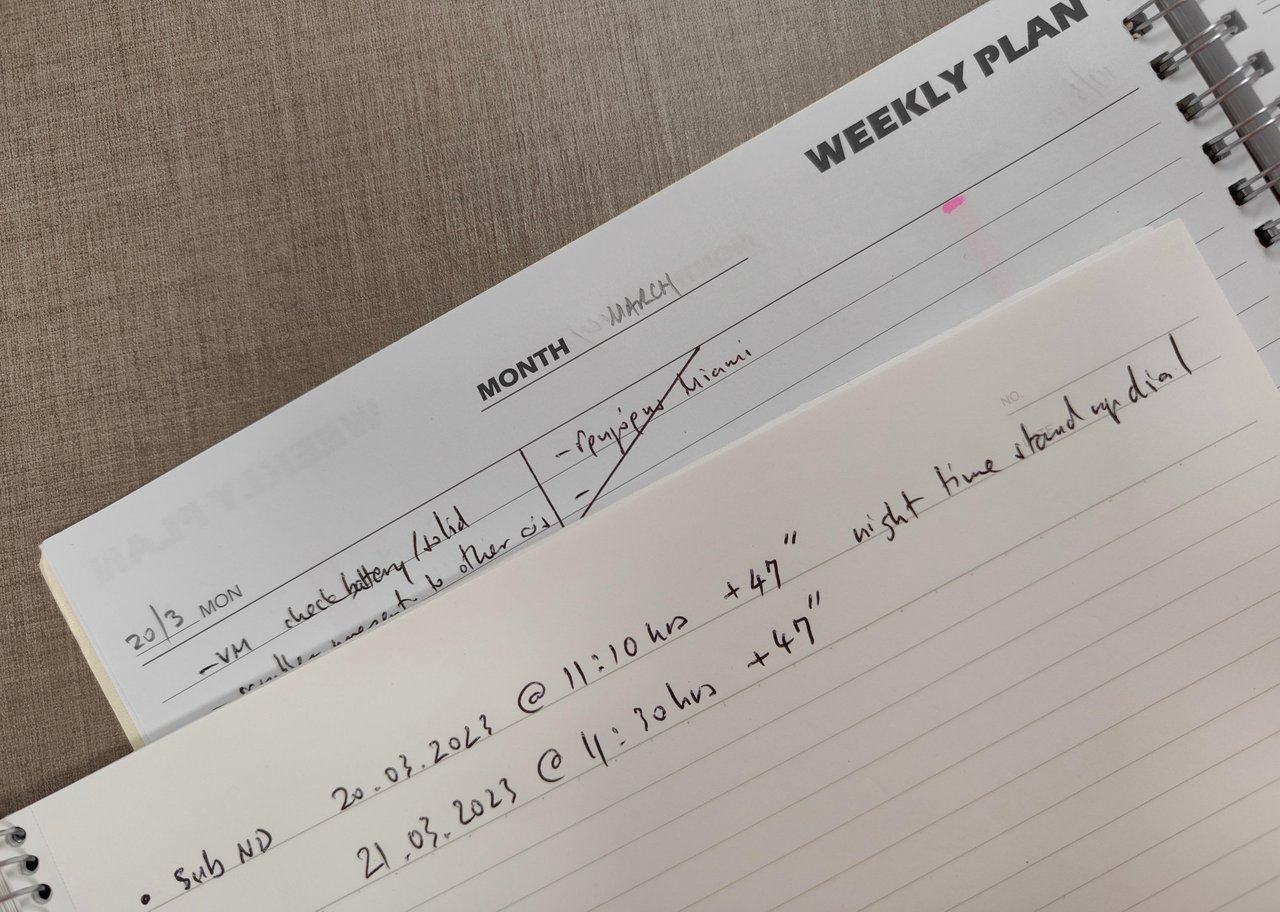 WEEKLY PLAN
MONTH MARCH
20/3 MON
-VM check battery/solid
to other
- Miami
-
NO.
• Sub ND 20.03.2023 @ 11:10 hrs +47" night time stand up dial
21.03.2023 @ 11:30 hrs +47"